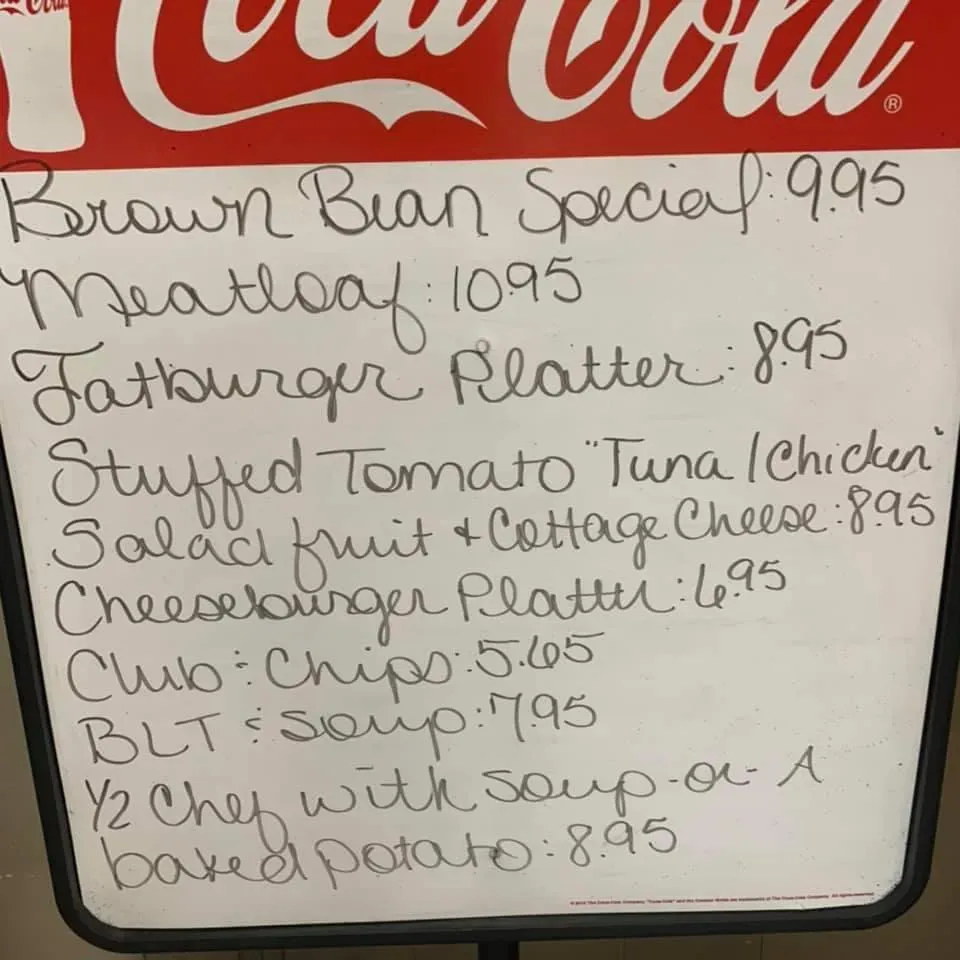 Coca-Cola ®
Brown Bean Special: 9.95
Meatloaf: 10.95
Fatburger Platter: 8.95
Stuffed Tomato "Tuna / Chicken"
Salad fruit + Cottage Cheese: 8.95
Cheeseburger Platter: 6.95
Club & Chips: 5.65
BLT & Soup: 7.95
1/2 Chef with soup -or- A
baked potato: 8.95